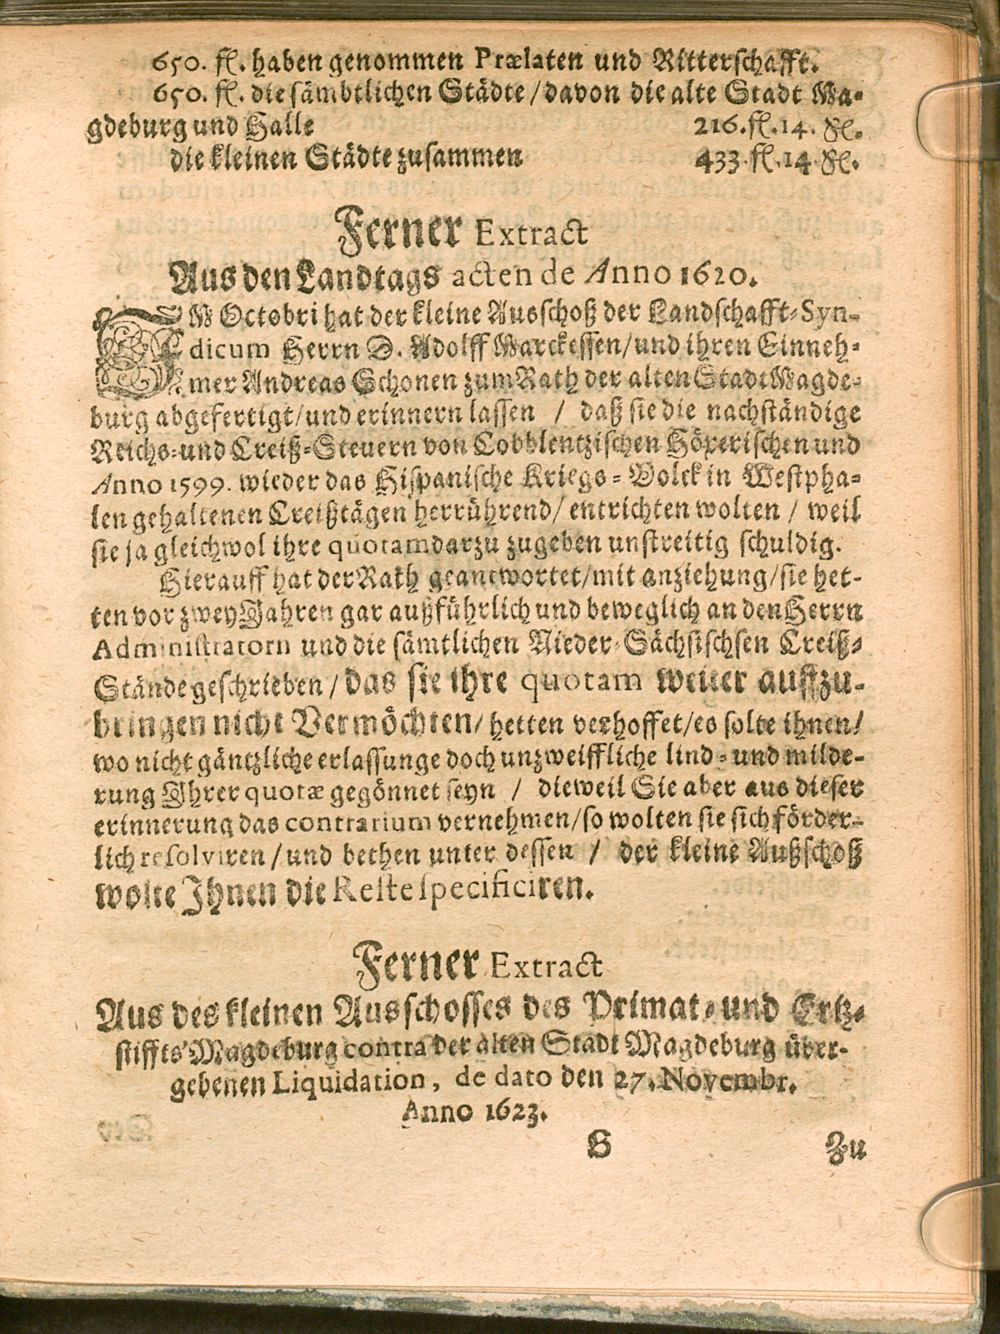 650. fl. haben genommen Prælaten und Ritterschafft.
650. fl. die sämbtlichen Städte / davon die alte Stadt Ma-
gdeburg und Halle 216. fl. 14. ßl.
die kleinen Städte zusammen 433. fl. 14 ßl.
Ferner Extract
Aus den Landtags acten de Anno 1620.
IM Octobri hat der kleine Ausschoß der Landschafft-Syn-
dicum Herrn D. Adolff Marckessen / und ihren Einneh-
mer Andreas Schonen zum Rath der alten Stadt Magde-
burg abgefertigt / und erinnern lassen / daß sie die nachständige
Reichs- und Creiß-Steuern von Cobblentzischen Höxerischen und
Anno 1599. wieder das Hispanische Kriegs-Volck in Westpha-
len gehaltenen Creißtägen herrührend / entrichten wolten / weil
sie ja gleichwol ihre quotam darzu zugeben unstreitig schuldig.
Hierauff hat der Rath geantwortet / mit anziehung / sie het-
ten vor zwey Jahren gar außführlich und beweglich an den Herrn
Administratorn und die sämtlichen Nieder-Sächsischsen Creiß-
Stände geschrieben / das sie ihre quotam weiter auffzu-
bringen nicht Vermöchten / hetten verhoffet / es solte ihnen /
wo nicht gäntzliche erlassunge doch unzweiffliche lind- und milde-
rung Ihrer quotæ gegönnet seyn / dieweil Sie aber aus dieser
erinnerung das contrarium vernehmen / so wolten sie sich förder-
lich resolviren / und bethen unter dessen / der kleine Außschoß
wolte Ihnen die Reste specificiren.
Ferner Extract
Aus des kleinen Ausschosses des Primat- und Ertz-
stiffts Magdeburg contra der alten Stadt Magdeburg über-
gebenen Liquidation, de dato den 27. Novembr.
Anno 1623.
S Zu